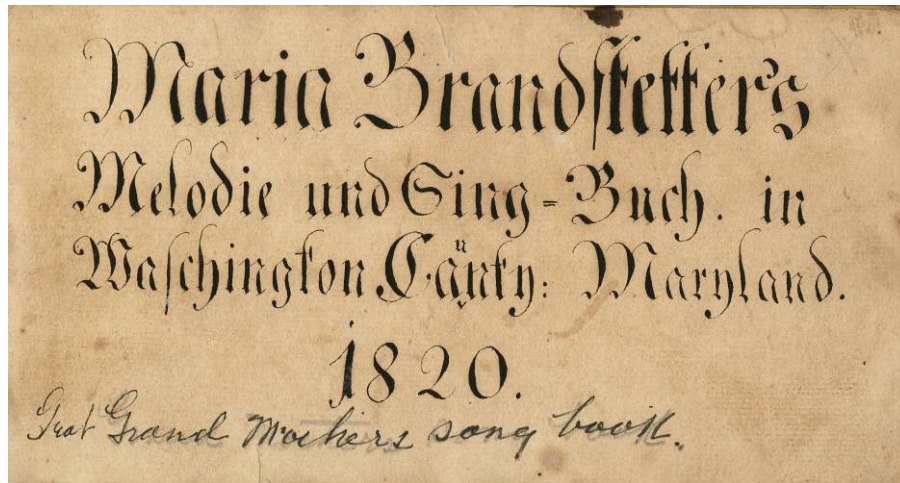 Maria Brandſtetter's
Melodie und Sing=Buch. in
Waſchington Cäunty: Maryland.
1820.
Great Grand Mothers song book.